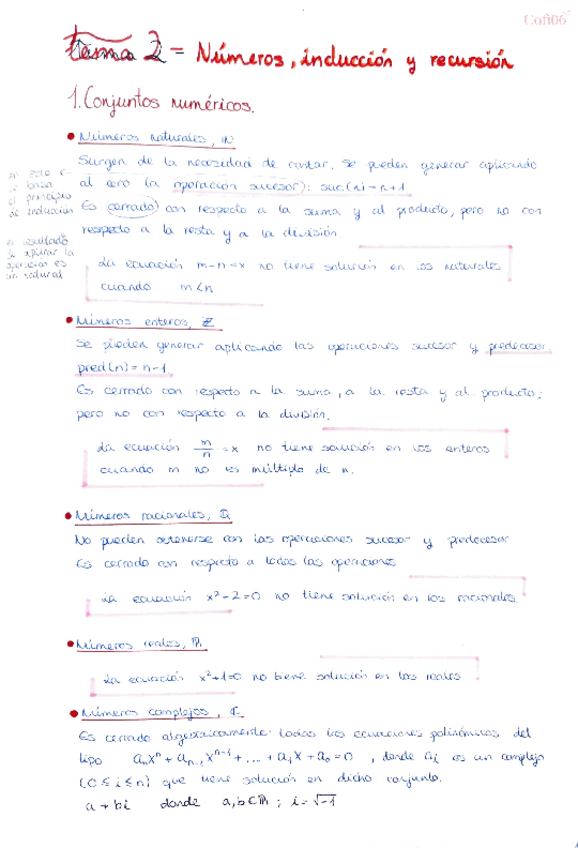 Cofi06
Tema 2 = Números, inducción y recursión
1. Conjuntos numéricos.
• Números naturales, ℕ
Surgen de la necesidad de contar. Se pueden generar aplicando
al cero la operación sucesor): suc(n) = n+1
Es cerrado con respecto a la suma y al producto, pero no con
respecto a la resta y a la división.
en esto
se basa
el principio
de inducción
el resultado
de aplicar la
operación es
un natural
La ecuación m-n=x no tiene solución en los naturales
cuando m<n
• Números enteros, ℤ
Se pueden generar aplicando las operaciones sucesor y predecesor.
pred(n) = n-1
Es cerrado con respecto a la suma, a la resta y al producto;
pero no con respecto a la división.
La ecuación m/n = x no tiene solución en los enteros
cuando m no es múltiplo de n.
• Números racionales, ℚ
No pueden obtenerse con las operaciones sucesor y predecesor
Es cerrado con respecto a todas las operaciones
La ecuación x²-2=0 no tiene solución en los racionales.
• Números reales, ℝ
La ecuación x²+1=0 no tiene solución en los reales
• Números complejos, ℂ
Es cerrado algebraicamente: todas las ecuaciones polinómicas del
tipo aₙxⁿ + aₙ₋₁xⁿ⁻¹ + ... + a₁x + a₀ = 0 , donde aᵢ es un complejo
(0 ≤ i ≤ n) que tiene solución en dicho conjunto.
a + bi donde a,b∈ℝ ; i=√-1